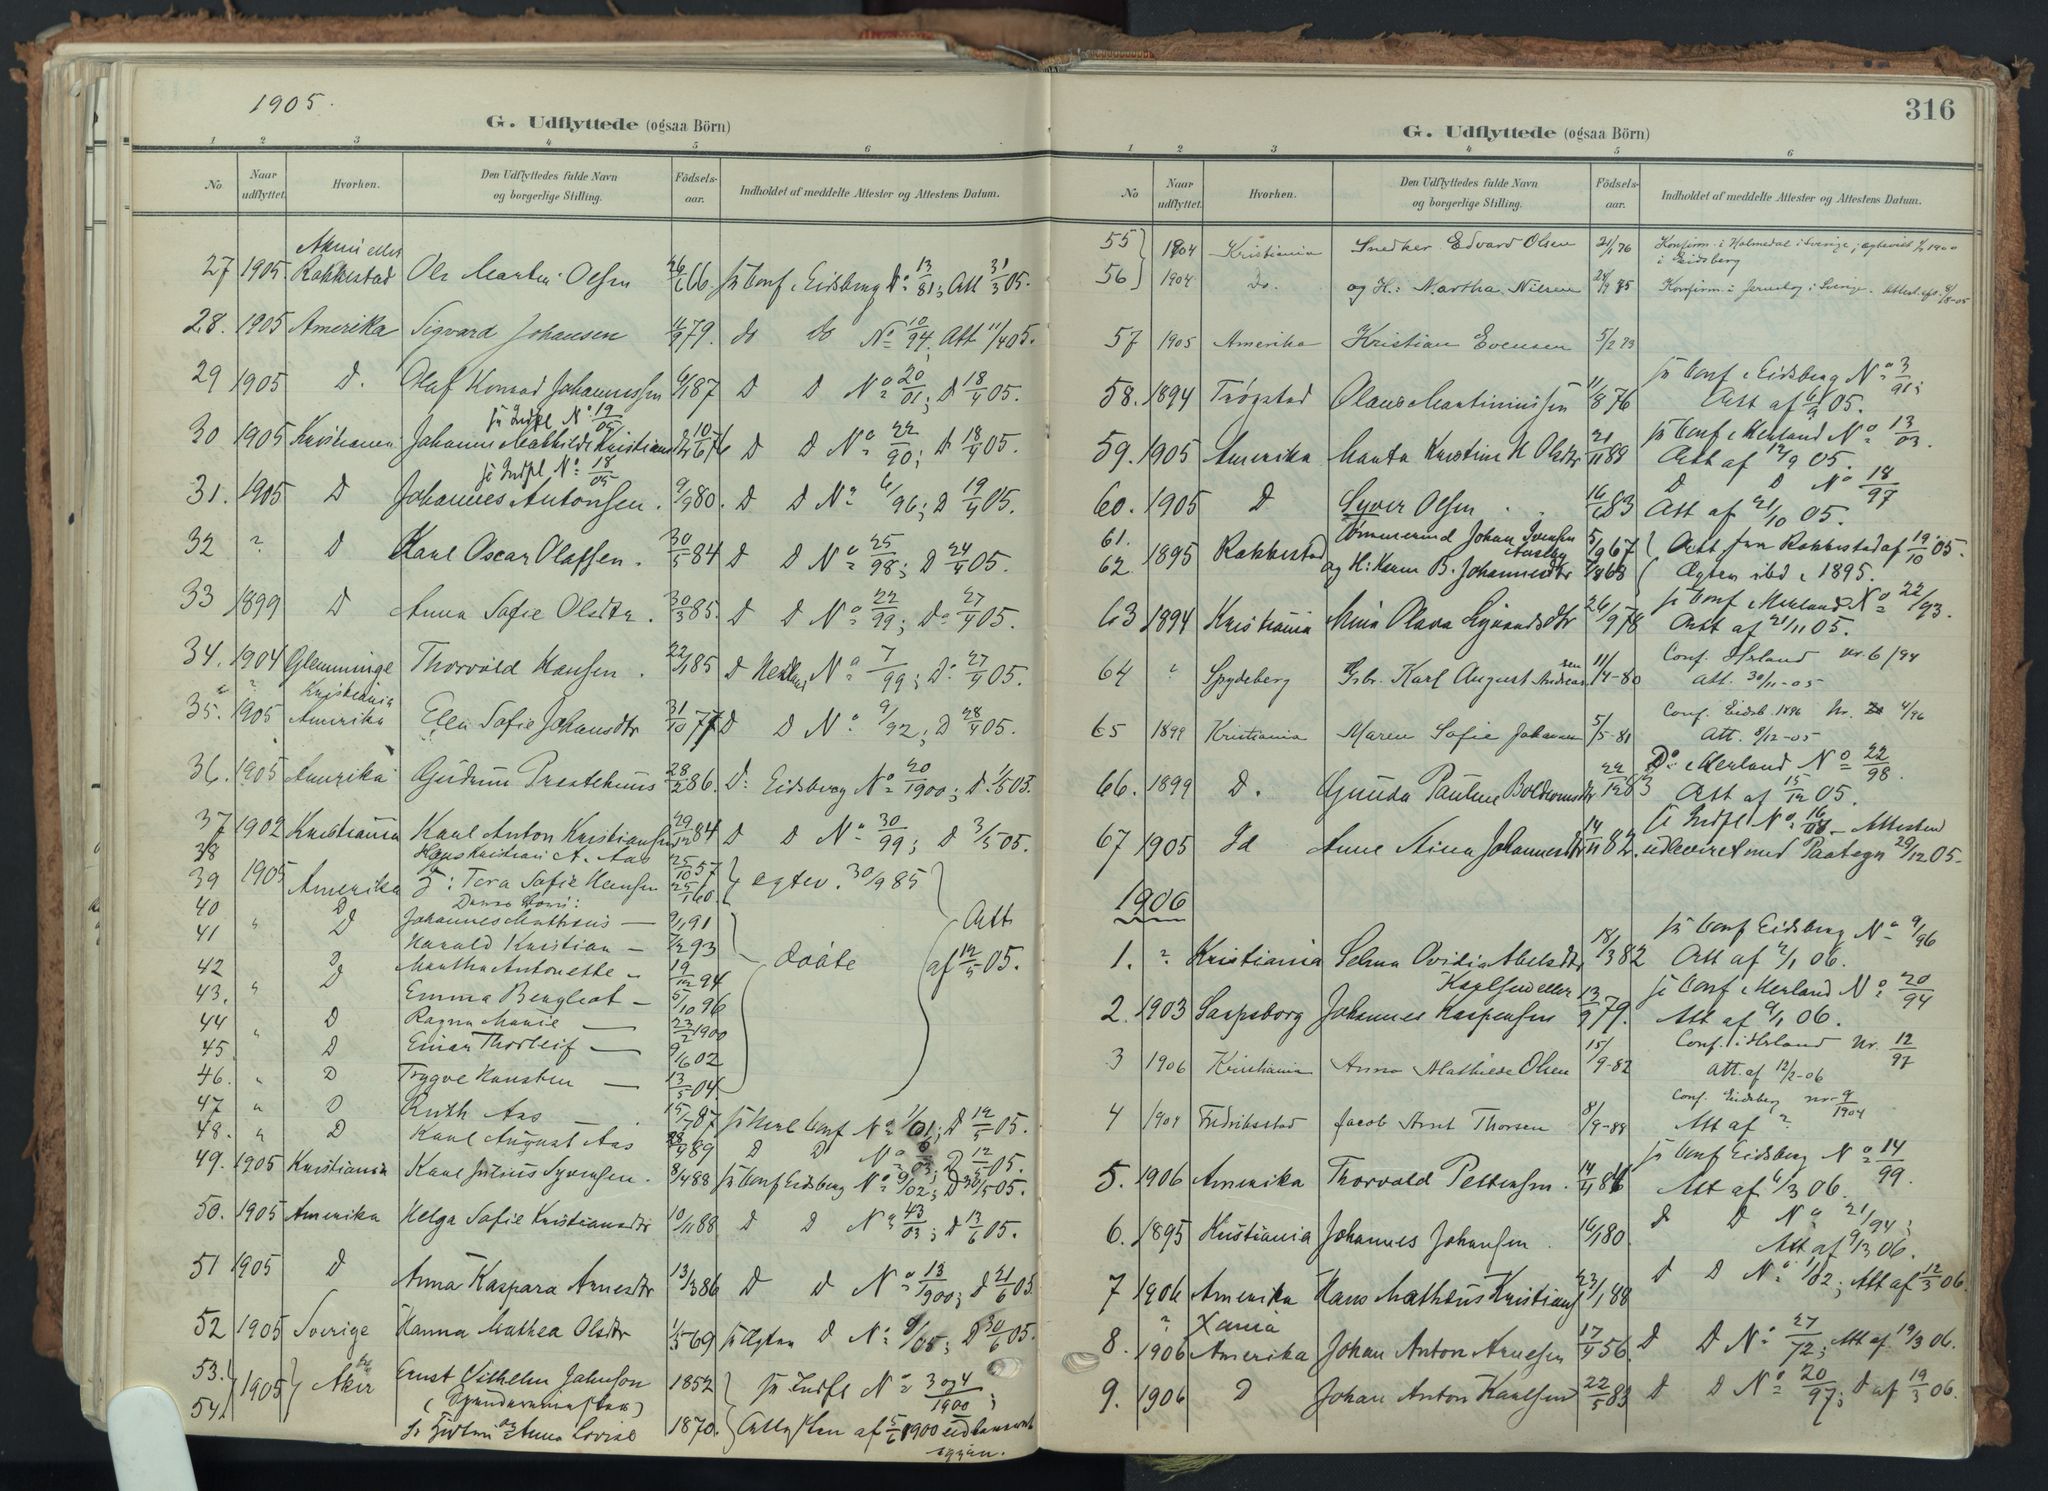 1905.
G. Udflyttede (ogsaa Börn)
1 2 3 4 5 6
No Naar udflyttet. Hvorhen. Den Udflyttedes fulde Navn og borgerlige Stilling. Födsels-aar. Indholdet af meddelte Attester og Attestens Datum.
27 1905 Rakkestad Ole Martin Olsen 26/6 66. Conf. Eidsberg No 13/81; Att 31/3 05.
28. 1905 Amerika Sigvard Johansen 79. do do No 10/94; Att 11/4 05.
29 1905 D. Olaf Konrad Johannessen 87 D D No 20/01; D 18/4 05.
Indfl No 19/05
30 1905 Kristiania Johanne Mathilde D D No 22/90; D 18/4 05.
Indfl No 18/05
31. 1905 D Johannes Antonsen. 9/9 80. D D No 6/96; D 19/4 05.
32 ? D Karl Oscar Olafsen. 30/5 84 D D No 25/98; D 24/4 05.
33 1899 D Anna Sofie Olsdtr. 30/3 85. D D No 22/99; Do 27/4 05.
34. 1904 Glemminge Thorvald Hansen. 22/1 85 D No 7/99; Do 27/4 05.
Kristiania
35. 1905 Amerika Elen Sofie Johansdtr 31/10 77 D D No 9/92; D 28/4 05.
36. 1905 Amerika Gudrun Prestehuus 28/2 86. D: Eidsberg No 20/1900; D. 1/5 05.
37 1902 Kristiania Karl Anton Kristiansen 29/12 84 D D No 30/99; D 3/5 05.
38 Hans Kristian A. Aas 25/10 57
39 1905 Amerika Tora Sofie Hansen 25/1 60. egtev. 30/9 85
40 " D Johannes Mathæus — 9/1 91 Att
41 Harald Kristian — 7/2 93 døbte af 12/5 05.
42 D Martha Antonette — 19/12 94
43. " Emma Bergleot — 5/10 96
44 " D Ragna Marie — 23/2 1900
45. D Einar Thorleif — 9/6 02
46. " D Trygve — 13/5 04.
47 " D Ruth Aas 15/7 87 Conf No 1/01; D 12/5 05.
48. " D Karl August Aas 89 D D No D 12/5 05.
49. 1905 Kristiania Karl Julius Syversen. 8/4 88 Conf Eidsberg No 9/02; D 5 05.
50. 1905 Amerika Helga Sofie Kristiansdtr 10/11 88 D D No 43/03; D 13/6 05.
51 1905 D Anna Kaspara Arnesdtr 13/3 86 D D No 13/1900; D 21/6 05.
52 1905 Sverige Hanna Mathea Olsdtr 1/5 69 D No 9/05; D 30/6 05.
53. 1905 Aker Ernst Vilhelm Johnson 1852 Indfl No 3 og 4/1900;
54. Anna Lovise 1870. af 5/6 1900
316
G. Udflyttede (ogsaa Börn)
1 2 3 4 5 6
No Naar udflyttet. Hvorhen. Den Udflyttedes fulde Navn og borgerlige Stilling. Födsels-aar. Indholdet af meddelte Attester og Attestens Datum.
55 1904 Kristiania Snedker Edvard Olsen 21/1 76 Konfirm. i Holmedal i Sverige; 1900
i Eidsberg
56 1904 Do. og H: Martha Nilsen 85 Konfirm. i i Sverige.
57 1905 Amerika Kristian Evensen 5/2 83
Conf. Eidsberg No 3/91;
58. 1894 Trøgstad Olaus Martiniussen 11/8 76 Att af 05.
Conf. Herland No 13/03.
59. 1905 Amerika Marta Kristine H Olsdtr 21/11 88 Att af 12/9 05.
D D No 18/97
60. 1905 D Syver Olsen 16/6 83 Att af 21/10 05.
61. Tømmermd Johan Svensen 5/9 67 Att fra Rakkestad af 19/10 05.
62. 1895 Rakkestad og H: Karen B. Johannesdtr 68 i 1895.
Conf. Herland No 22/93.
63 1894 Kristiania Mina Olava Sigvardsdtr 26/9 78 Att af 21/11 05.
Conf. Herland nr. 6/94
64 " Spydeberg Gbr. Karl August Andreassen 11/4-80 Att. 30/11-05
Conf. Eidsb. 1896 Nr. 4/96
65 1899 Kristiania Maren Sofie Johansen 5/5-81 Att. 8/12-05
Do Herland No 22/98.
66. 1899 D. Gunda Pauline 22/12 83 Att af 15/12 05.
Indfl No 16/04 — Attesten
67 1905 Id Anne Mina Johannesdtr 14/11 82. udleveret med Paategn 29/12 05.
1906
Conf Eidsberg No 9/96
1. ? Kristiania Selma Ovidia Abelsdtr 18/3 82 Att af 2/1 06.
Karlsen eller Conf. Herland No 20/94
2. 1903 Sarpsborg Johannes Kaspersen 13/9 79. Att af 9/1 06.
Conf. i Herland Nr. 12/97
3 1906 Kristiania Anna Mathilde Olsen 15/9-82 Att. af 12/2-06
Conf. Eidsberg nr 9/1904
4 1904 Fredriksstad Jacob Arnt Thorsen 8/9-88 Att af ?
Conf Eidsberg No 14/99.
5. 1906 Amerika Thorvald Pettersen. 14/4 84 Att af 6/3 06.
D D No 21/94;
6. 1895 Kristiania Johannes Johansen. 16/1 80. Att af 9/3 06.
7 1906 Amerika Hans Mathæus Kristians 23/1 88 D D No 1/02; Att af 12/3 06.
? Xania
8. 1906 Amerika Johan Anton Arnesen 17/4 56. D D No 27/72; Att af 19/3 06.
9. 1906 D Johan Anton Karlsen 22/5 83 D D No 20/97; D af 19/3 06.